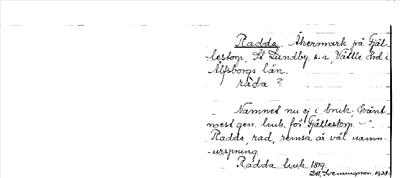 Radda, Åkermark på Fjäl-
lestorp, St Lundby s:n, Vättle hd i
Älfsborgs län.
råda ?
Namnet nu ej i bruk.
mest gen. lurk. för Fjällestorp.
Radda, rad, remsa är väl namn-
ursprung.
Rådda 1819.
1931.